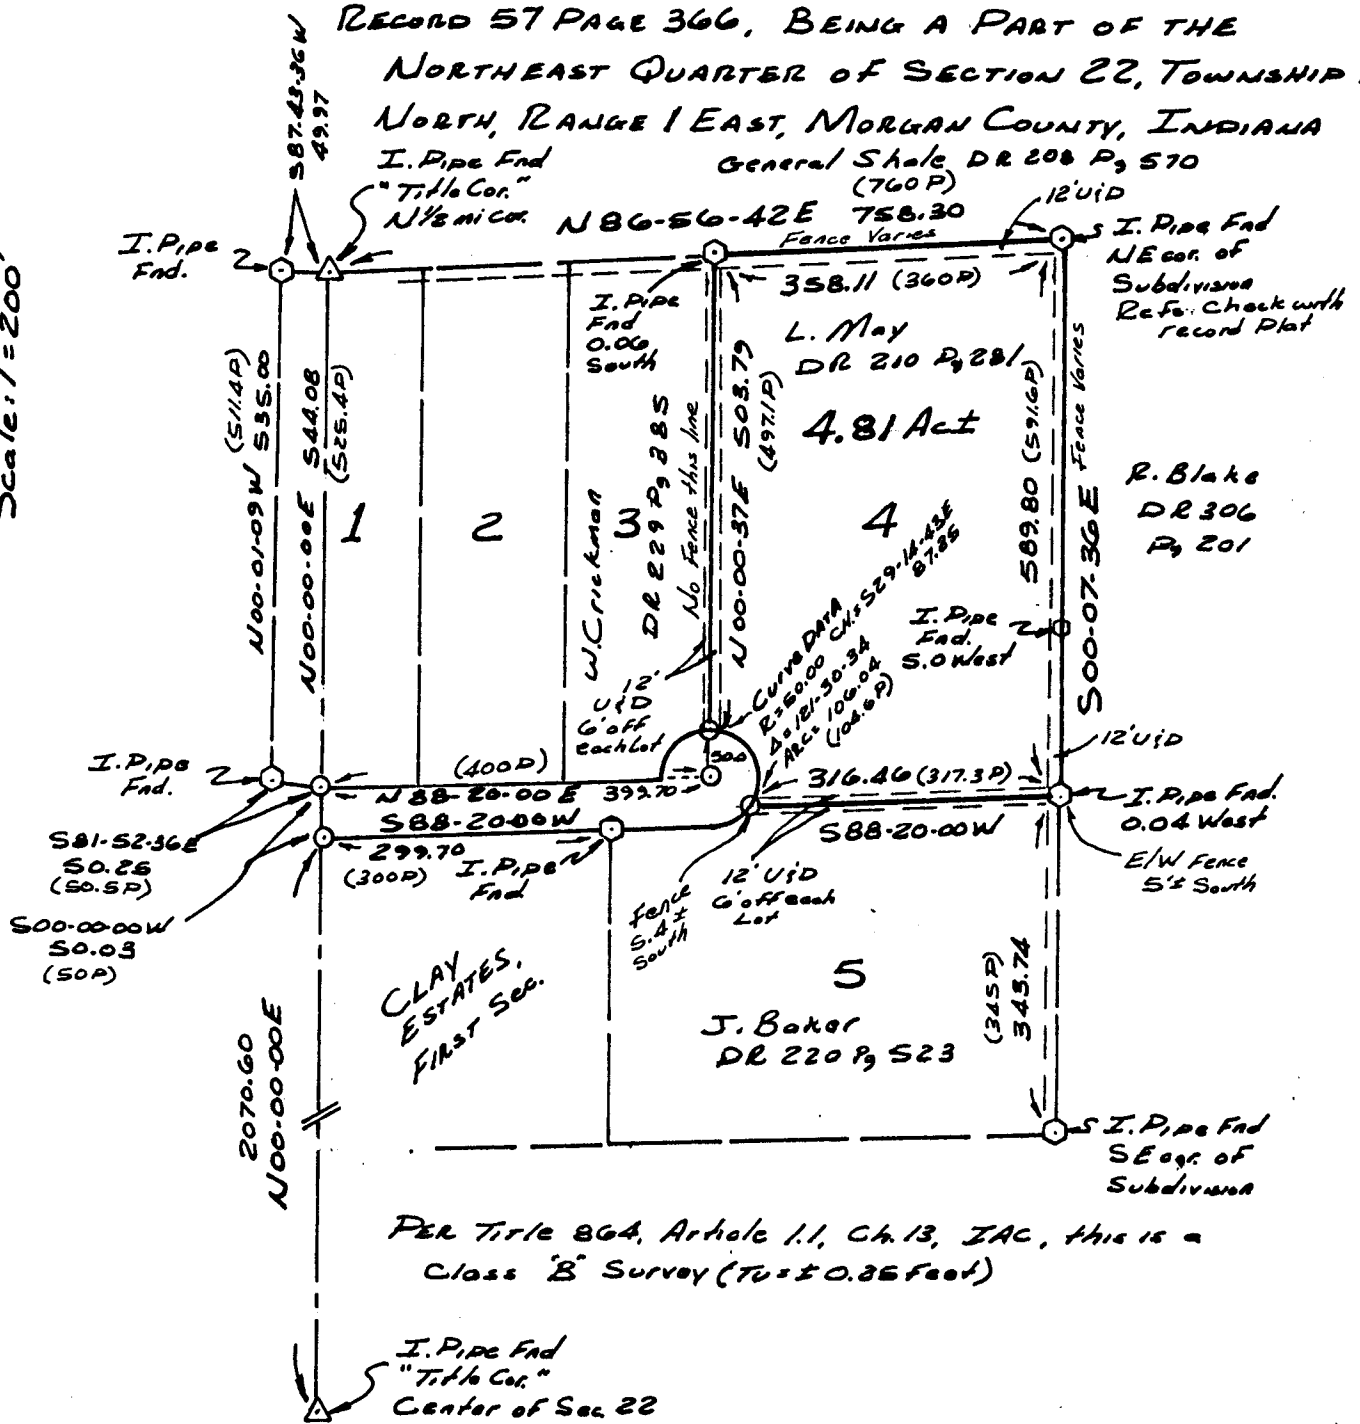 RECORD 57 PAGE 366, BEING A PART OF THE
NORTHEAST QUARTER OF SECTION 22, TOWNSHIP
NORTH, RANGE 1 EAST, MORGAN COUNTY, INDIANA
Scale: 1"=200'
S87-43-36W
49.97
I. Pipe Fnd
"Title Cor."
N 1/2 mi cor.
General Shale DR 208 Pg 570
(760 P)
N 86-56-42 E 758.30
Fence Varies
12' U&D
I. Pipe Fnd
NE cor. of
Subdivision
Refs. Check with
record Plat
I. Pipe
Fnd.
358.11 (360P)
I. Pipe
Fnd
0.06
South
L. May
DR 210 Pg 281
4.81 Ac±
(511.4P)
N00-01-09W 535.00
N00-00-00E 544.08
(525.4P)
1
2
3
4
W. Crickman
DR 229 Pg 385
No Fence this line
N00-00-37E 503.79
(497.1P)
589.80 (591.6P)
Fence Varies
S00-07-36E
R. Blake
DR 306
Pg 201
Curve DATA
R=50.00 CH.=S29-14-43E
87.25
Δ=121-30-34
ARC= 106.04
(104.6P)
I. Pipe
Fnd.
5.0 West
12'
U&D
6' off
each Lot
50.0
12' U&D
I. Pipe
Fnd.
(400P)
N 88-20-00 E 399.70
316.46 (317.3P)
I. Pipe Fnd.
0.04 West
S88-20-00W
S88-20-00W
299.70
(300P)
I. Pipe
Fnd
S81-52-36E
50.25
(50.5P)
S00-00-00W
50.03
(50P)
12' U&D
6' off each
Lot
Fence
5.4±
South
E/W Fence
5'± South
CLAY
ESTATES,
FIRST SEC.
5
(345P)
343.74
J. Baker
DR 220 Pg 523
2070.60
N00-00-00E
I. Pipe Fnd
SE cor. of
Subdivision
PER Title 864, Article 1.1, Ch. 13, IAC, this is a
Class "B" Survey (Tu=± 0.25 Feet)
I. Pipe Fnd
"Title Cor."
Center of Sec. 22